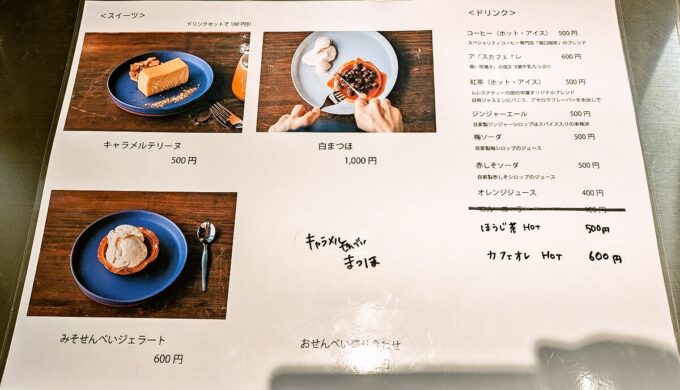 <スイーツ>
ドリンクセットで100円引
キャラメルテリーヌ
500円
白まつほ
1,000円
みそせんべいジェラート
600円
キャラメル
まつほ
おせんべい
円
<ドリンク>
コーヒー（ホット・アイス） 500円
スペシャリティコーヒー専門店「堀口珈琲」のブレンド
600円
紅茶（ホット・アイス） 500円
ムレスナティーの
白桃ジャスミンにバニラ、アセロラフレーバーを水出しで
ジンジャーエール 500円
自家製ジンジャーシロップはスパイス入りの本格派
梅ソーダ 500円
自家製梅シロップのジュース
赤しそソーダ 500円
自家製赤しそシロップのジュース
オレンジジュース 400円
400円
ほうじ茶 HOT 500円
カフェオレ HOT 600円